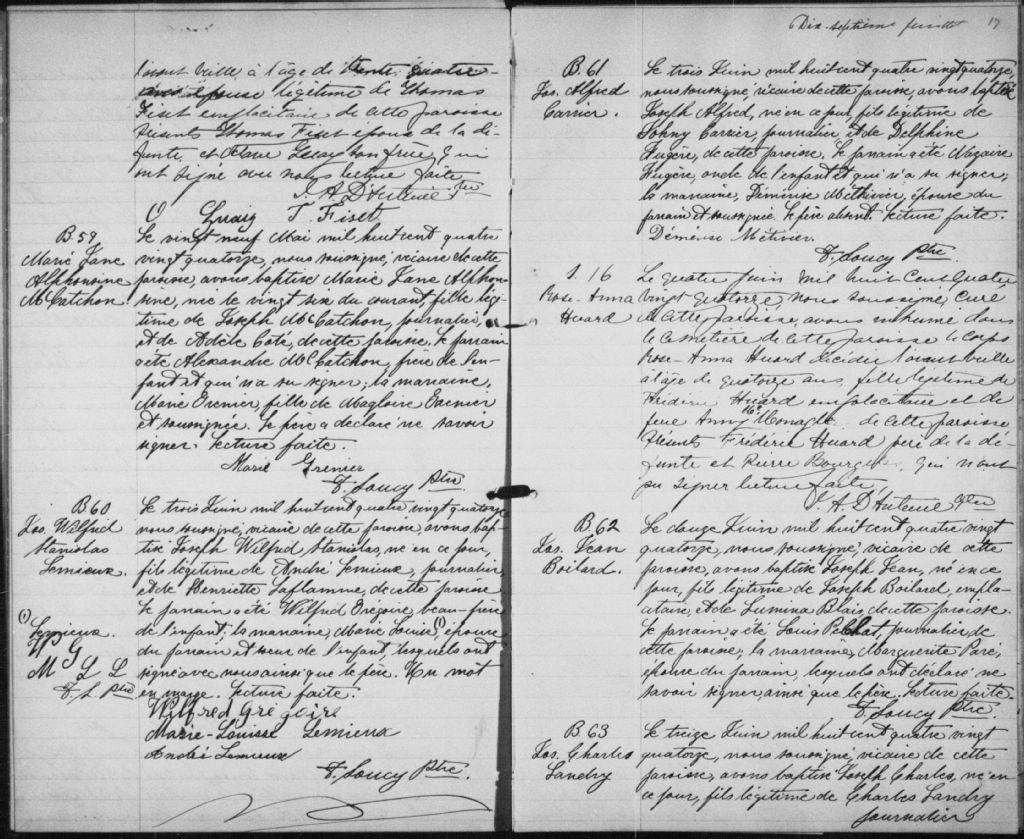 l'avant veille à l'âge de trente quatre
ans épouse légitime de Thomas
Fiset emplacitaire de cette paroisse
Présents Thomas Fiset epoux de la dé-
funte, et Octave Guay son frère, qui
ont signé avec nous lecture faite
J. A. D'Auteuil Ptre
O Guay T. Fiset
B. 59
Marie Jane
Alphonsine
McCatchon
Le vingt neuf Mai mil huit cent quatre
vingt quatorze, nous soussigné, vicaire de cette
paroisse, avons baptisé Marie Jane Alphon-
sine, née le vingt six du courant, fille légi-
time de Joseph McCatchon, journalier,
et de Adèle Coté, de cette paroisse. Le parrain
a été Alexandre McCatchon, frère de l'en-
fant et qui n'a su signer; la marraine,
Marie Grenier, fille de Magloire Grenier
et soussignée. Le père a déclaré ne savoir
signer. Lecture faite.
Marie Grenier
F. Soucy Ptre
B 60
Jos. Wilfrid
Stanislas
Lemieux.
Le trois Juin mil huit cent quatre vingt quatorze
nous soussigné, vicaire de cette paroisse, avons bap-
tisé Joseph Wilfrid Stanislas, né en ce jour,
fils légitime de André Lemieux, journalier,
et de Henriette Laflamme, de cette paroisse
Le parrain a été Wilfrid Grégoire, beau-frère
de l'enfant, la marraine, Marie Louise (1), épouse
du parrain et soeur de l'enfant, lesquels ont
signé avec nous ainsi que le père. Un mot
en marge. Lecture faite.
(1)
Lemieux.
W G
M L L
F. S. Ptre
Wilfred Grégoire
Marie-Louise Lemieux
André Lemieux
F. Soucy Ptre
Dix-septième feuillet 17
B. 61
Jos. Alfred
Carrier.
Le trois Juin mil huit cent quatre vingt quatorze,
nous soussigné, vicaire de cette paroisse, avons baptisé
Joseph Alfred, né en ce jour, fils légitime de
Johny Carrier, journalier et de Delphine
Fugère, de cette paroisse. Le parrain a été Nazaire
Fugère, oncle de l'enfant et qui n'a su signer;
la marraine, Démerise Méthivier, épouse du
parrain et soussignée. Le père absent. Lecture faite.
Démerise Métivier.
F. Soucy Ptre
S. 16
Rose-Anna
Huard
Le quatre Juin mil huit cent quatre
vingt quatorze, nous soussigné, curé
de cette paroisse, avons inhumé dans
le cimetière de cette paroisse le corps
Rose-Anna Huard décédée l'avant veille
à l'âge de quatorze ans, fille légitime de
Frédéric Huard emplacitaire et de
feue Anny McDonagle de cette paroisse
Présents Frédéric Huard père de la dé-
funte et Pierre Bourget qui n'ont
pu signer lecture faite
J. A. D'Auteuil Ptre
B. 62
Jos. Jean
Boilard.
Le douze Juin mil huit cent quatre vingt
quatorze, nous soussigné, vicaire de cette
paroisse, avons baptisé Joseph Jean, né en ce
jour, fils légitime de Joseph Boilard, empla-
citaire, et de Lumina Blais, de cette paroisse.
Le parrain a été Louis Pelchat, journalier, de
cette paroisse; la marraine, Marguerite Paré,
épouse du parrain, lesquels ont déclaré ne
savoir signer, ainsi que le père. Lecture faite.
F. Soucy Ptre
B. 63
Jos. Charles
Landry
Le treize Juin mil huit cent quatre vingt
quatorze, nous soussigné, vicaire de cette
paroisse, avons baptisé Joseph Charles, né en
ce jour, fils légitime de Charles Landry
journalier